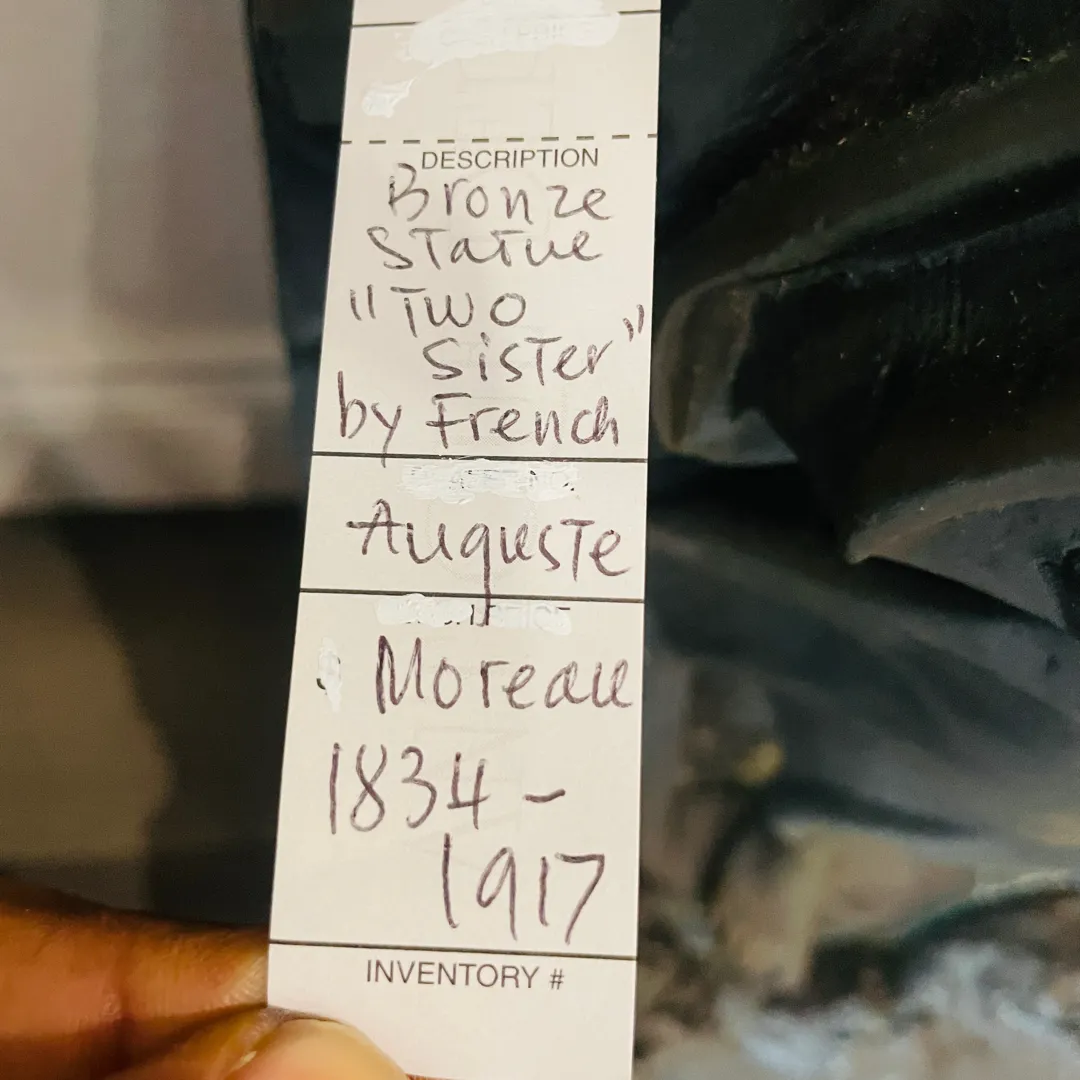 DESCRIPTION
Bronze
Statue
"Two
Sister"
by French
Auguste
Moreau
1834-
1917
INVENTORY #